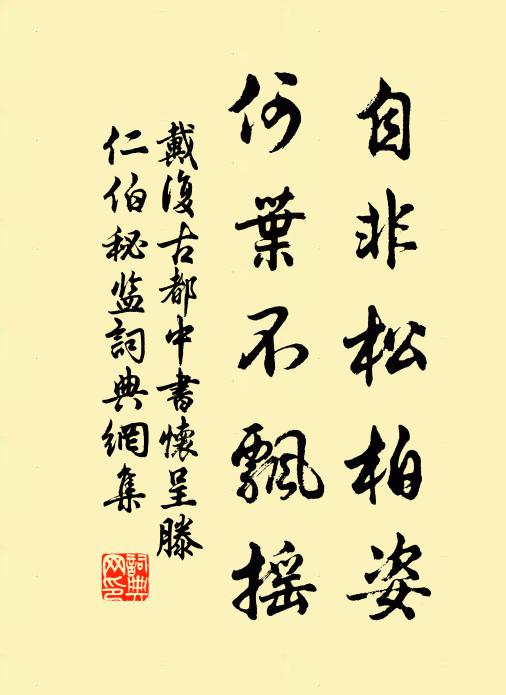 自非松柏姿
何葉不飄摇
戴復古都中書懷呈滕
仁伯秘监詞典網集
詞典
网印